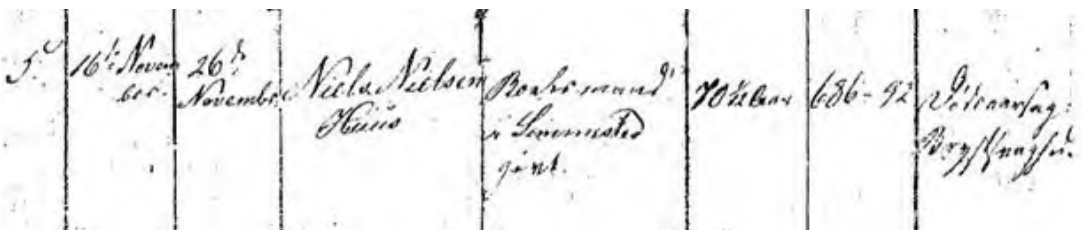 5.
16de Novem
ber.
26de
Novembr.
Niels Nielsen
Huus
Boelsmand
i Limmsted
givt.
70 ½ Aar
686-92
Dødsaarsag:
Brystsvaghed.